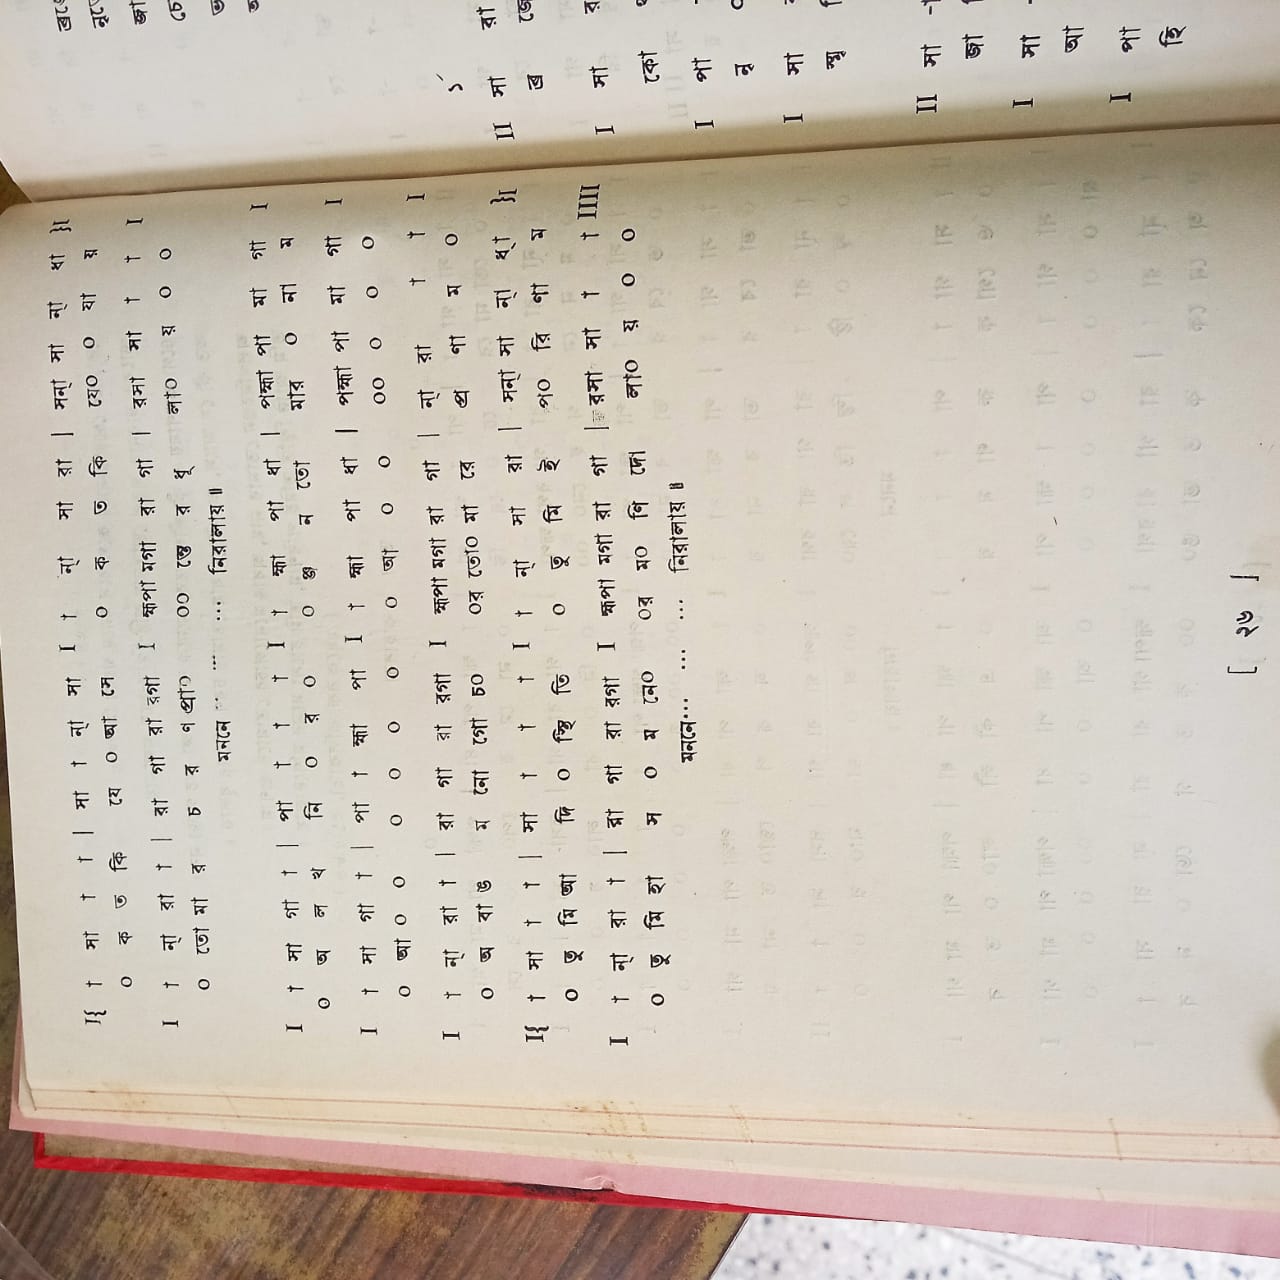 I{ † সা † † | সা † ন্‌া সা I † ন্‌া সা রা | সন্‌া সা ন্‌া ধা }I
০ ক ত কি যে ০ আ সে ০ ক ত কি যে০ ০ যা য়
I † ন্‌া রা † | রা গা রা রগা I হ্মপা মগা রা গা | রসা সা † † I
০ তো মার চ র ণ প্রা০ ০০ ন্তে র ধূ লা০ য় ০ ০
মননে ... ... নিরালায়॥
I † সা গা † | পা † † † I † হ্মা পা ধা | পহ্মা পা মা গা I
০ অ ল খ নি ০ র ০ ০ ঞ্জ ন তো মার ০ না ম
I † সা গা † | পা † হ্মা পা I † হ্মা পা ধা | পহ্মা পা মা গা I
০ আ ০ ০ ০ ০ ০ ০ ০ আ ০ ০ ০০ ০ ০ ০
I † ন্‌া রা † | রা গা রা রগা I হ্মপা মগা রা গা | ন্‌া রা † † I
০ অ বা ঙ ম নো গো চ০ ০র তো০ মা রে প্র ণা ম ০
I{ † সা † † | সা † † † I † ন্‌া সা রা | সন্‌া সা ন্‌া ধ্‌া }I
০ তু মি আ দি ০ স্থি তি ০ তু মি ই প০ রি ণা ম
I † ন্‌া রা † | রা গা রা রগা I হ্মপা মগা রা গা | রসা সা † † IIII
০ তু মি হা স ০ ম নে০ ০র ম০ ণি দো লা০ য় ০ ০
মননে... ... ... নিরালায়॥
[ ২৬ ]
II সা রা
I সা
কো
I পা
I সা
II সা
জা
I সা
আ
I পা
হি